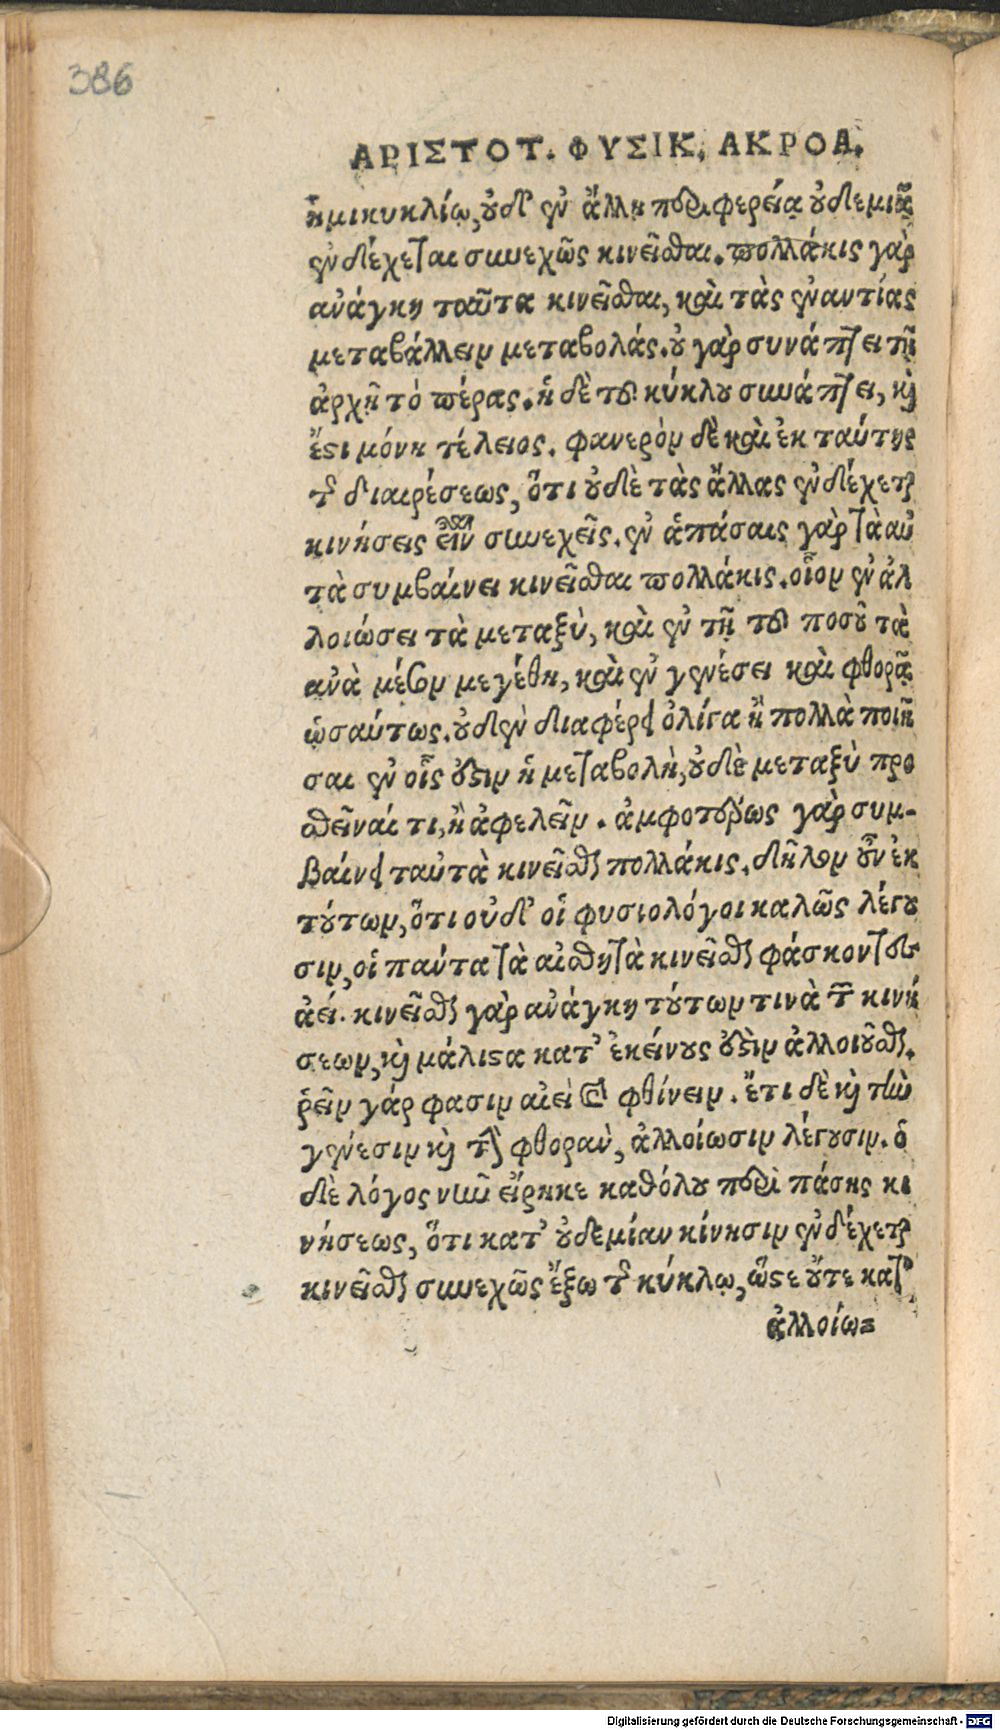 386
ΑΡΙΣΤΟΤ. ΦΥΣΙΚ. ΑΚΡΟΑ.
ἡμικυκλίῳ, οὐδ' ἐν ἄλλῃ περιφερείᾳ οὐδεμιᾷ
ἐνδέχεται συνεχῶς κινεῖσθαι. πολλάκις γὰρ
ἀνάγκη ταῦτα κινεῖσθαι, καὶ τὰς ἐναντίας
μεταβάλλειν μεταβολάς. οὐ γὰρ συνάπτει τῇ
ἀρχῇ τὸ πέρας. ἡ δὲ τοῦ κύκλου συνάπτει, καὶ
ἔστι μόνη τέλειος. φανερὸν δὲ καὶ ἐκ ταύτης
τῆς διαιρέσεως, ὅτι οὐδὲ τὰς ἄλλας ἐνδέχεται
κινήσεις εἶναι συνεχεῖς. ἐν ἁπάσαις γὰρ τὰ αὐ
τὰ συμβαίνει κινεῖσθαι πολλάκις. οἷον ἐν ἀλ
λοιώσει τὰ μεταξὺ, καὶ ἐν τῇ τοῦ ποσοῦ τὰ
ἀνὰ μέσον μεγέθη, καὶ ἐν γενέσει καὶ φθορᾷ
ὡσαύτως. οὐδὲν διαφέρει ὀλίγα ἢ πολλὰ ποιῆ
σαι ἐν οἷς ἐστὶν ἡ μεταβολὴ, οὐδὲ μεταξὺ προσ
θεῖναί τι, ἢ ἀφελεῖν. ἀμφοτέρως γὰρ συμ-
βαίνει ταὐτὰ κινεῖσθαι πολλάκις. δῆλον οὖν ἐκ
τούτων, ὅτι οὐδ' οἱ φυσιολόγοι καλῶς λέγου
σιν, οἱ πάντα τὰ αἰσθητὰ κινεῖσθαι φάσκοντες
ἀεί. κινεῖσθαι γὰρ ἀνάγκη τούτων τινὰ τῶν κινή
σεων, καὶ μάλιστα κατ' ἐκείνους ἐστὶν ἀλλοιοῦσθαι.
ῥεῖν γάρ φασιν αἰεὶ καὶ φθίνειν. ἔτι δὲ καὶ τὴν
γένεσιν καὶ τὴν φθορὰν, ἀλλοίωσιν λέγουσιν. ὁ
δὲ λόγος νῦν εἴρηκε καθόλου περὶ πάσης κι
νήσεως, ὅτι κατ' οὐδεμίαν κίνησιν ἐνδέχεται
κινεῖσθαι συνεχῶς ἔξω τῆς κύκλῳ, ὥστε οὔτε κατ'
ἀλλοίω=
Digitalisierung gefördert durch die Deutsche Forschungsgemeinschaft - DFG